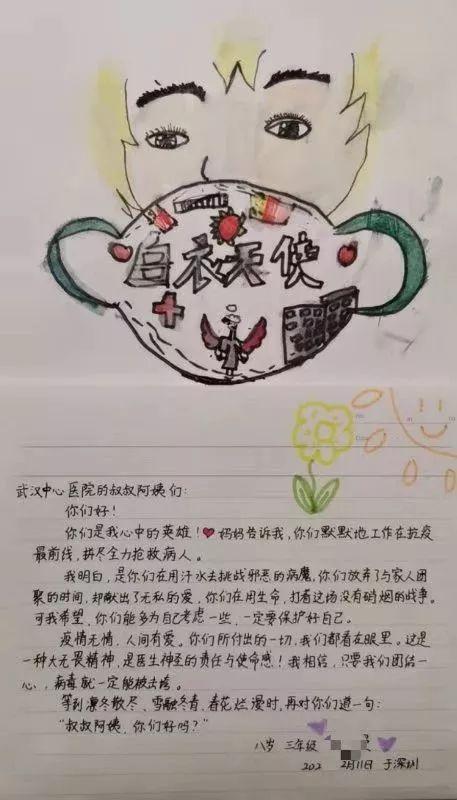 白衣天使
武汉中心医院的叔叔阿姨们：
你们好！
你们是我心中的英雄！妈妈告诉我，你们默默地工作在抗疫
最前线，拼尽全力抢救病人。
我明白，是你们在用汗水去挑战邪恶的病魔，你们放弃了与家人团
聚的时间，却献出了无私的爱，你们在用生命，打着这场没有硝烟的战争。
可我希望，你们能多为自己考虑一些，一定要保护好自己。
疫情无情，人间有爱。你们所付出的一切，我们都看在眼里。这是
一种大无畏精神，是医生神圣的责任与使命感！我相信，只要我们团结一
心，病毒就一定能被击垮。
等到凛冬散尽，雪融冬青，春花烂漫时，再对你们道一句：
“叔叔阿姨，你们好吗？”
八岁 三年级
202 2月11日 于深圳